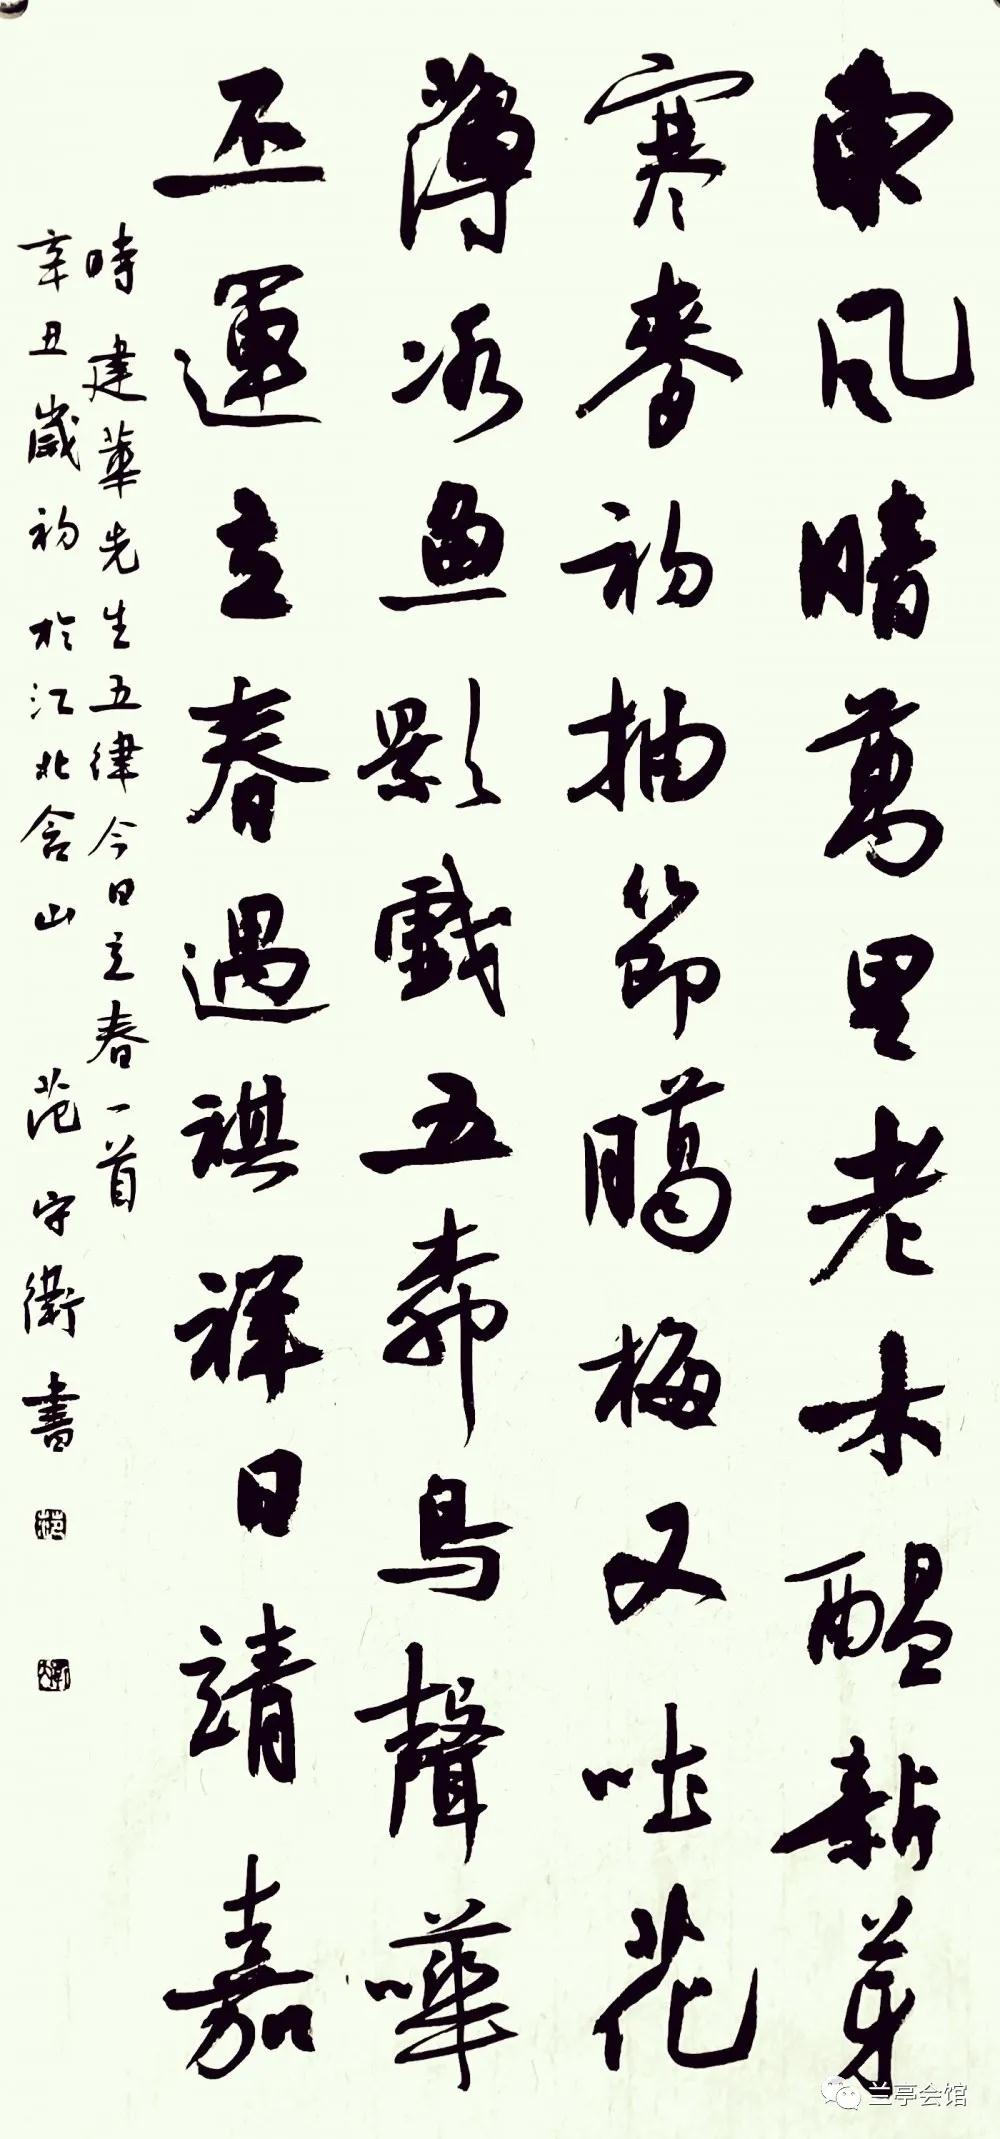 東風暗萬里老木醖新芽
寒麥初抽節臈梅又吐花
薄冰魚影戲五柳鳥聲嘩
丕運立春遇祺祥日靖嘉
時建華先生五律今日立春一首
辛丑歲初於江北含山 范守衛書
兰亭会馆